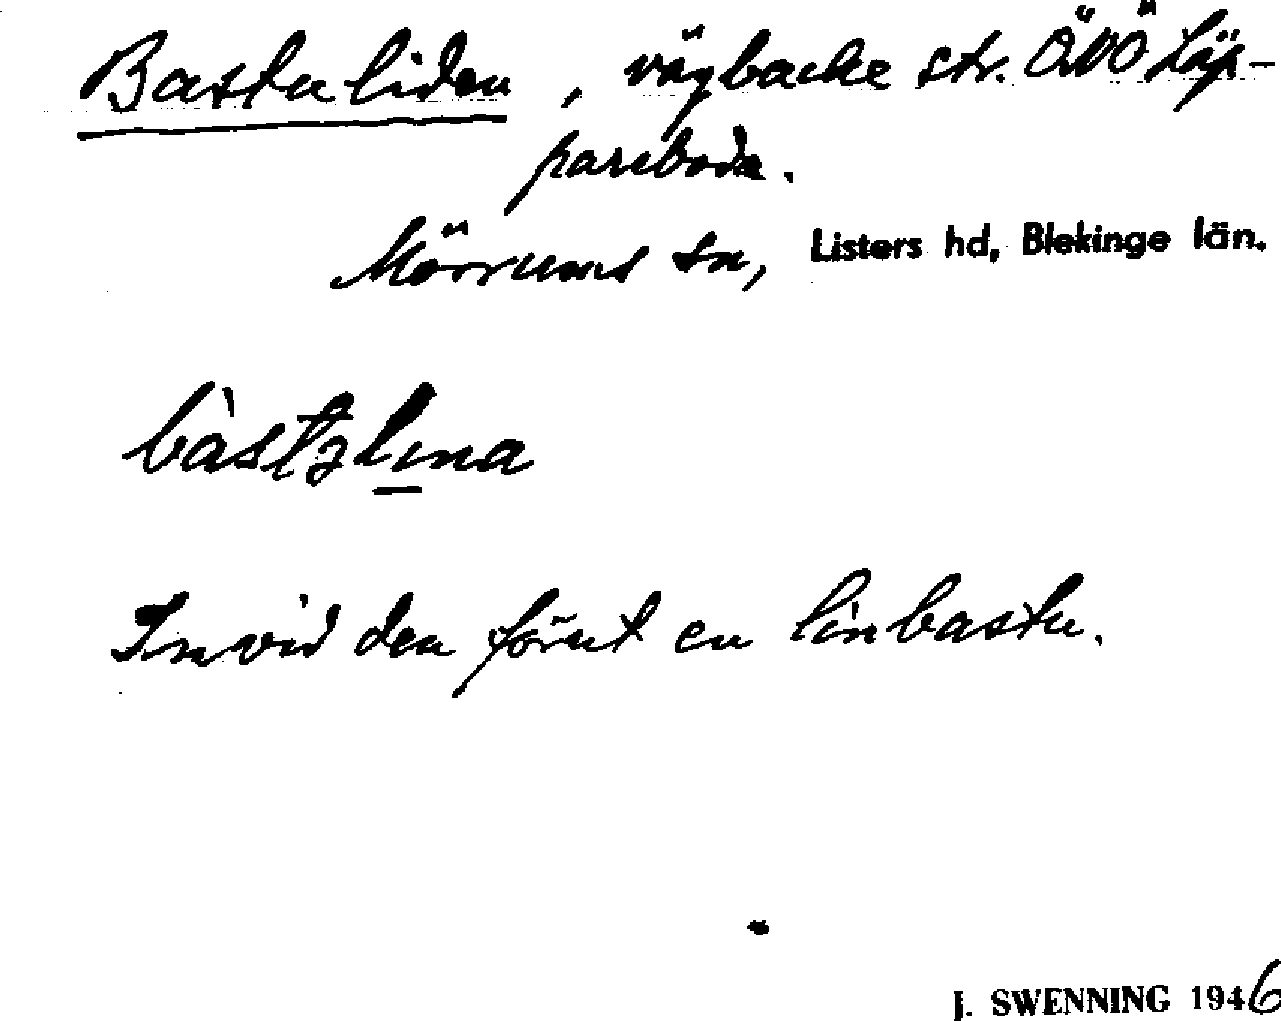 Bastuliden, vägbacke str. ÖNÖ Läp-
pareboda.
Mörrums sn, Listers hd, Blekinge län.
bàstəlɩna
Invid den förut en linbastu.
J. SWENNING 1946